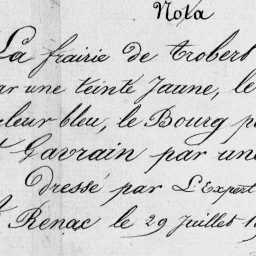 Nota
La frairie de Trobert
ar une teinte Jaune, le
leur bleu, le Bourg p
t Gavrain par un
Dressé par L'Expert
A Renac le 29 Juillet 1